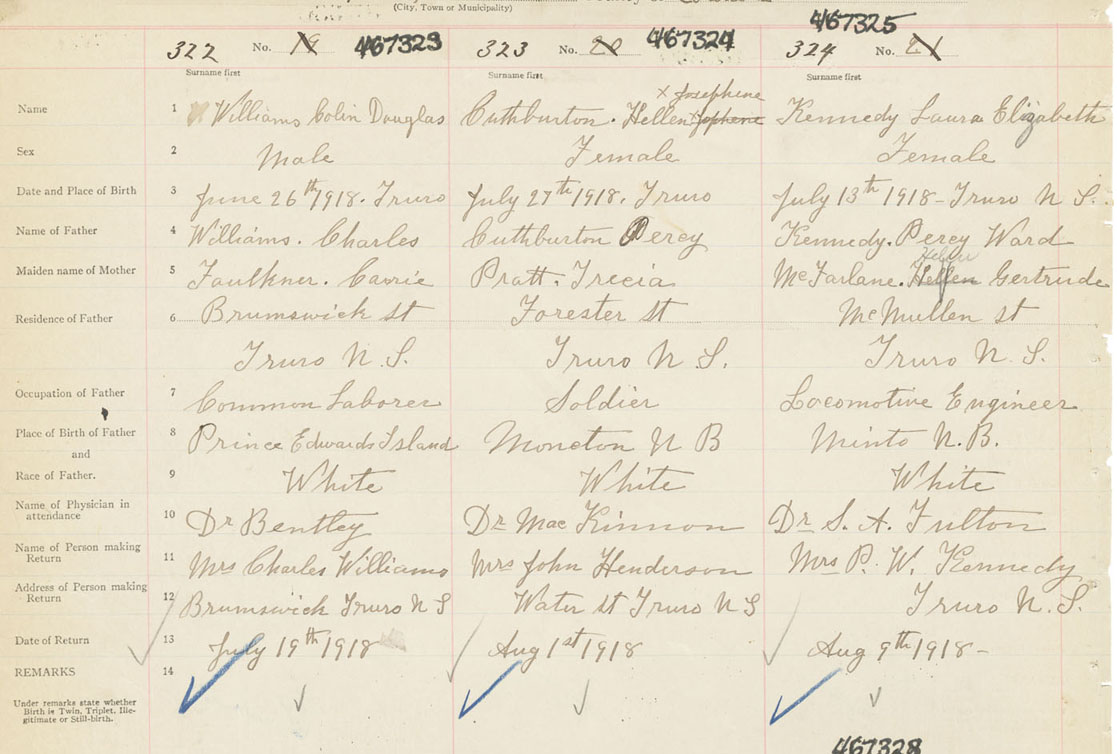 (City, Town or Municipality)
322 No. 19 467323 323 No. 20 467324 324 No. 21 467325
Surname first Surname first Surname first
x Josephene
Name 1 Williams Colin Douglas Cuthburton. Hellen Jophene Kennedy Laura Elizabeth
Sex 2 Male Female Female
Date and Place of Birth 3 June 26th 1918. Truro July 27th 1918. Truro July 13th 1918 - Truro N S.
Name of Father 4 Williams. Charles Cuthburton Percy Kennedy. Percy Ward
Helen
Maiden name of Mother 5 Faulkner. Carrie Pratt. Trecia McFarlane. Hellen Gertrude
Residence of Father 6 Brumswick st Forester st McMullen st
Truro N. S. Truro N S. Truro N. S.
Occupation of Father 7 Common Laborer Soldier Locomotive Engineer
Place of Birth of Father 8 Prince Edwards Island Moncton N B Minto N.B.
and
Race of Father. 9 White White White
Name of Physician in attendance 10 Dr Bentley Dr Mac Kinnon Dr S. A. Fulton
Name of Person making Return 11 Mrs Charles Williams Mrs John Henderson Mrs P. W. Kennedy
Address of Person making Return 12 Brumswick Truro N S Water st Truro N S Truro N.S.
Date of Return 13 July 19th 1918 Aug 1st 1918 Aug 9th 1918 -
REMARKS 14
Under remarks state whether
Birth is Twin, Triplet, Ille-
gitimate or Still-birth.
467328